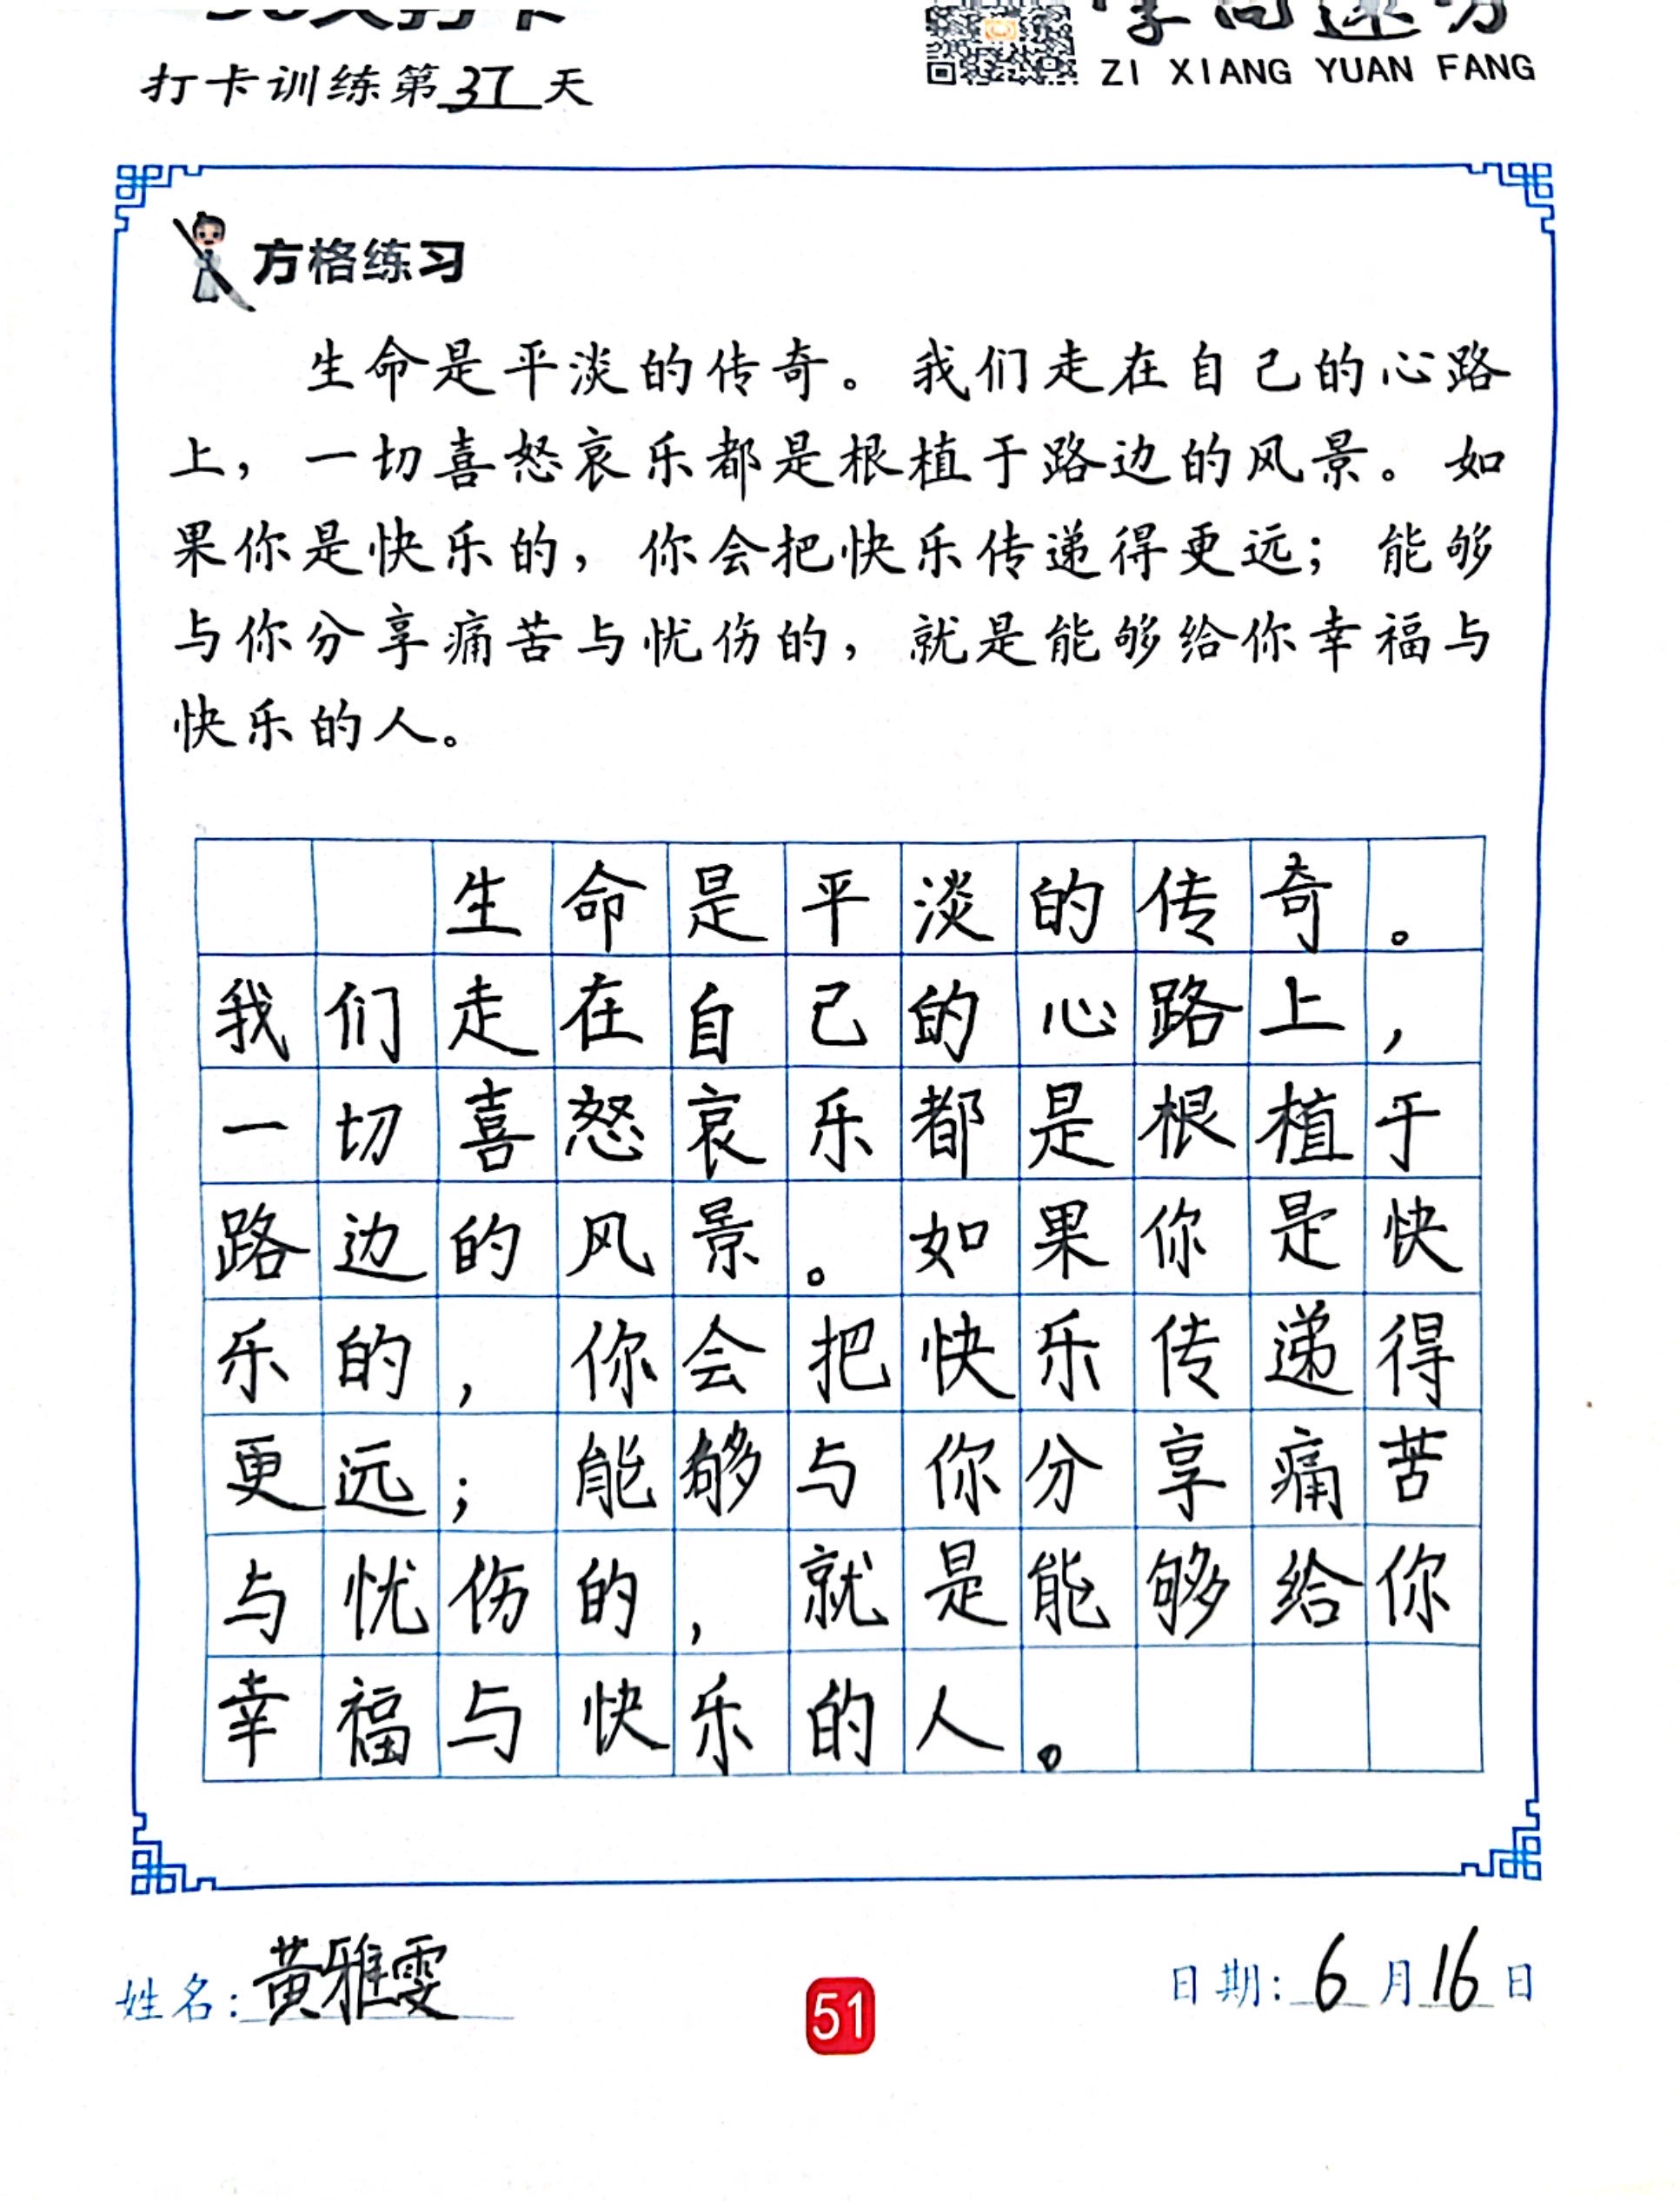 打卡训练第37天
ZI XIANG YUAN FANG
方格练习
生命是平淡的传奇。我们走在自己的心路
上，一切喜怒哀乐都是根植于路边的风景。如
果你是快乐的，你会把快乐传递得更远；能够
与你分享痛苦与忧伤的，就是能够给你幸福与
快乐的人。
生命是平淡的传奇。
我们走在自己的心路上，
一切喜怒哀乐都是根植于
路边的风景。如果你是快
乐的，你会把快乐传递得
更远；能够与你分享痛苦
与忧伤的，就是能够给你
幸福与快乐的人。
姓名：黄雅雯
51
日期：6月16日